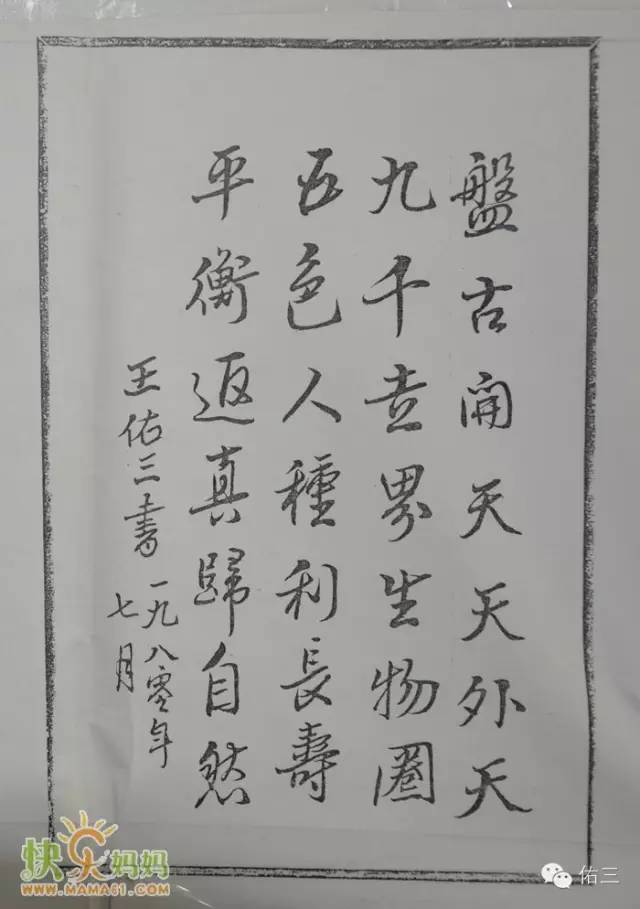 盤古開天天外天
九千世界生物圈
五色人種利長壽
平衡返真歸自然
王佑三書一九八零年
七月
快乐妈妈
WWW.MAMA61.COM
佑三